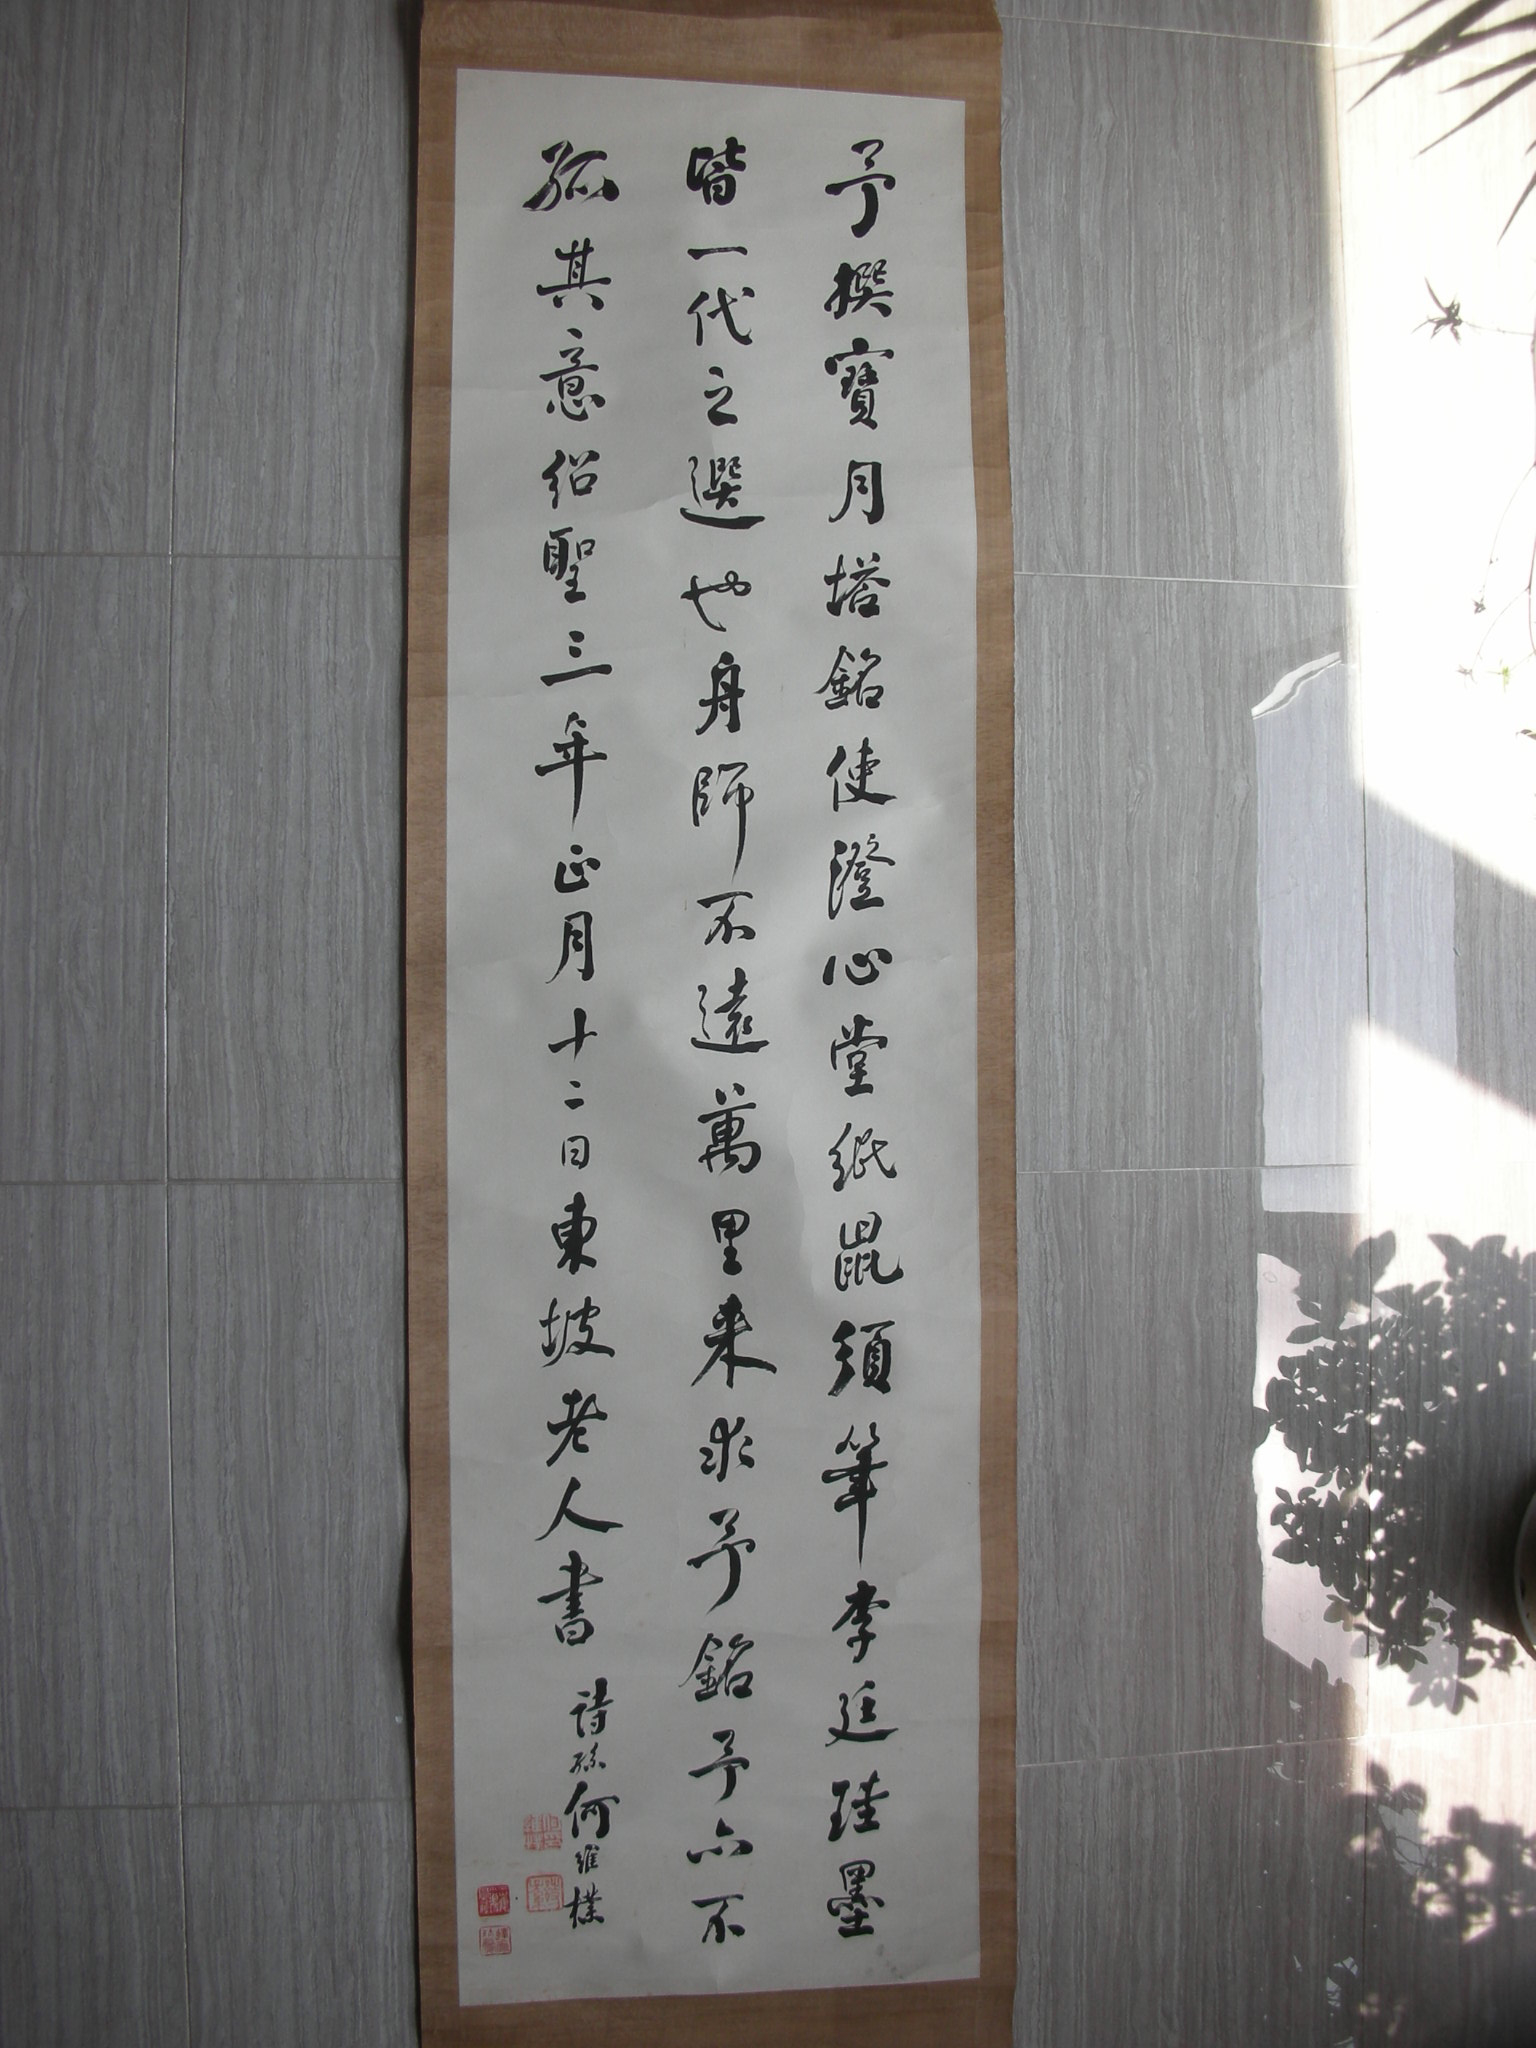 予撰寶月塔銘使澄心堂紙鼠須筆李廷珪墨
皆一代之選也舟師不遠萬里来求予銘予亦不
孤其意紹聖三年正月十二日東坡老人書
詩孫何維樸